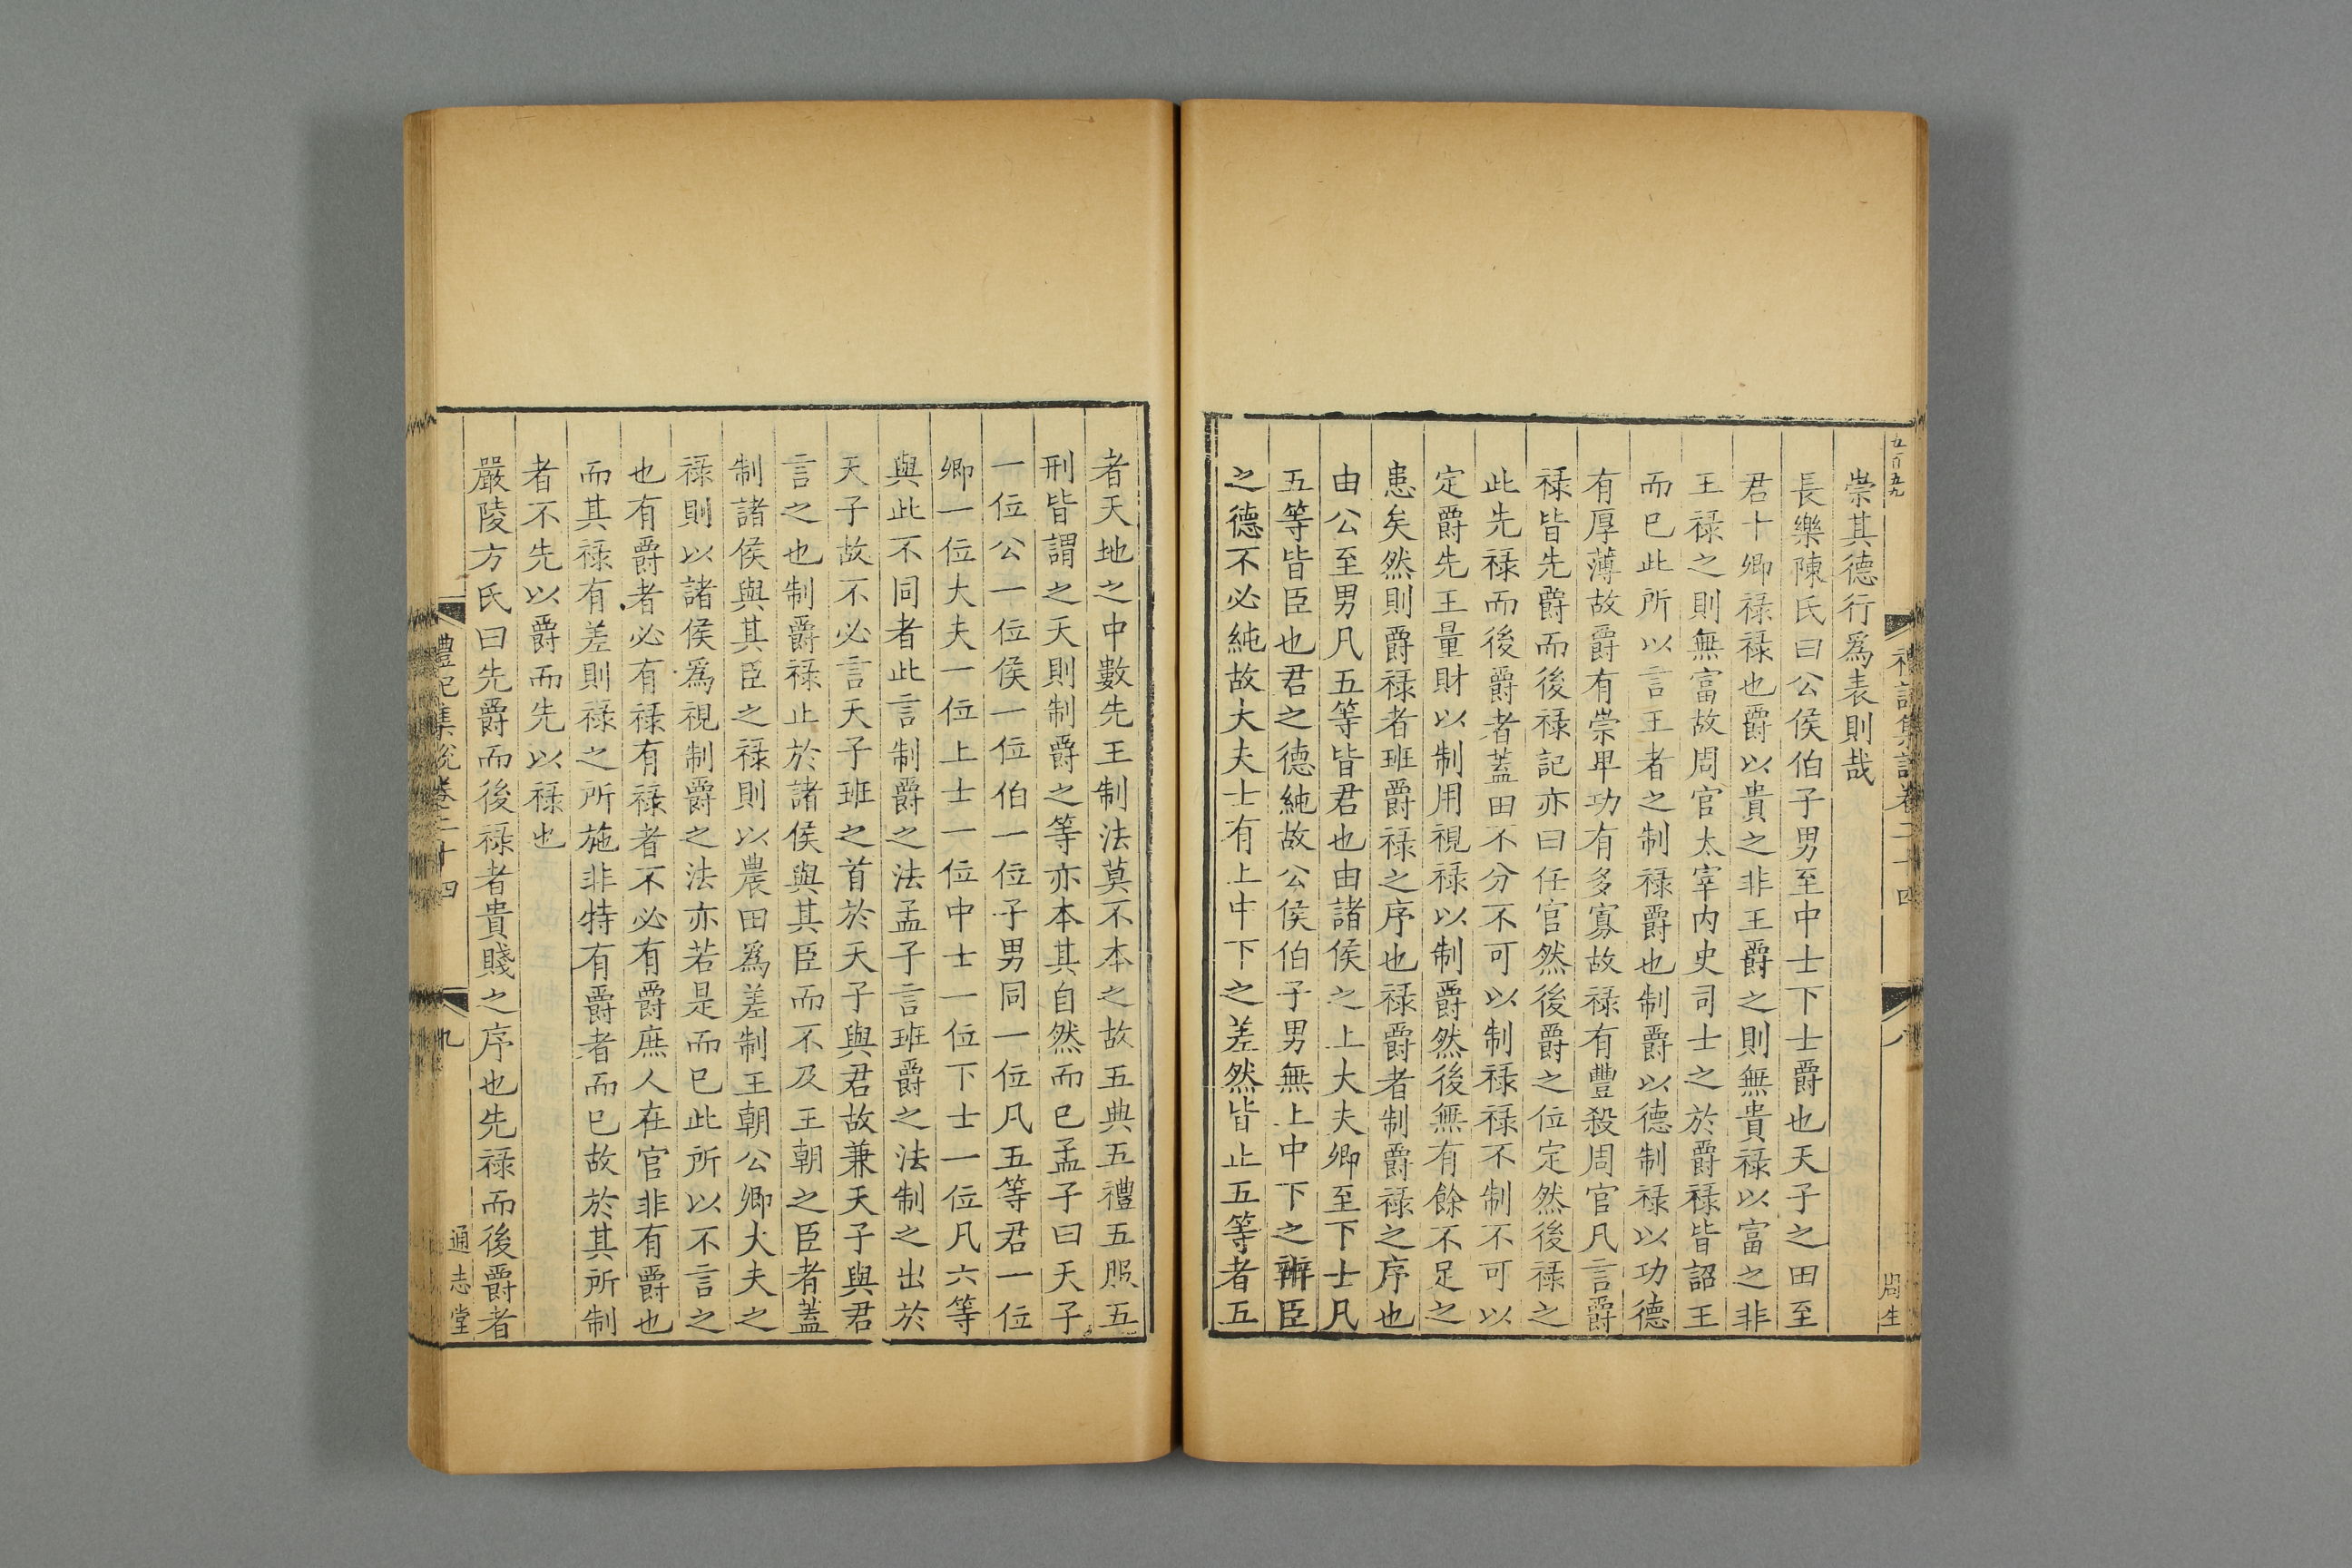 五百五九
禮記集說卷二十四
八
周生
崇其德行爲表則哉
長樂陳氏曰公侯伯子男至中士下士爵也天子之田至
君十卿禄禄也爵以貴之非王爵之則無貴禄以富之非
王禄之則無富故周官太宰内史司士之於爵禄皆詔王
而已此所以言王者之制禄爵也制爵以德制禄以功德
有厚薄故爵有崇卑功有多寡故禄有豐殺周官凡言爵
禄皆先爵而後禄記亦曰任官然後爵之位定然後禄之
此先禄而後爵者蓋田不分不可以制禄禄不制不可以
定爵先王量財以制用視禄以制爵然後無有餘不足之
患矣然則爵禄者班爵禄之序也禄爵者制爵禄之序也
由公至男凡五等皆君也由諸侯之上大夫卿至下士凡
五等皆臣也君之德純故公侯伯子男無上中下之辨臣
之德不必純故大夫士有上中下之差然皆止五等者五
者天地之中數先王制法莫不本之故五典五禮五服五
刑皆謂之天則制爵之等亦本其自然而已孟子曰天子
一位公一位侯一位伯一位子男同一位凡五等君一位
卿一位大夫一位上士一位中士一位下士一位凡六等
與此不同者此言制爵之法孟子言班爵之法制之出於
天子故不必言天子班之首於天子與君故兼天子與君
言之也制爵禄止於諸侯與其臣而不及王朝之臣者蓋
制諸侯與其臣之禄則以農田爲差制王朝公卿大夫之
禄則以諸侯爲視制爵之法亦若是而已此所以不言之
也有爵者必有禄有禄者不必有爵庶人在官非有爵也
而其禄有差則禄之所施非特有爵者而已故於其所制
者不先以爵而先以禄也
嚴陵方氏曰先爵而後禄者貴賤之序也先禄而後爵者
禮記集說卷二十四
九
通志堂